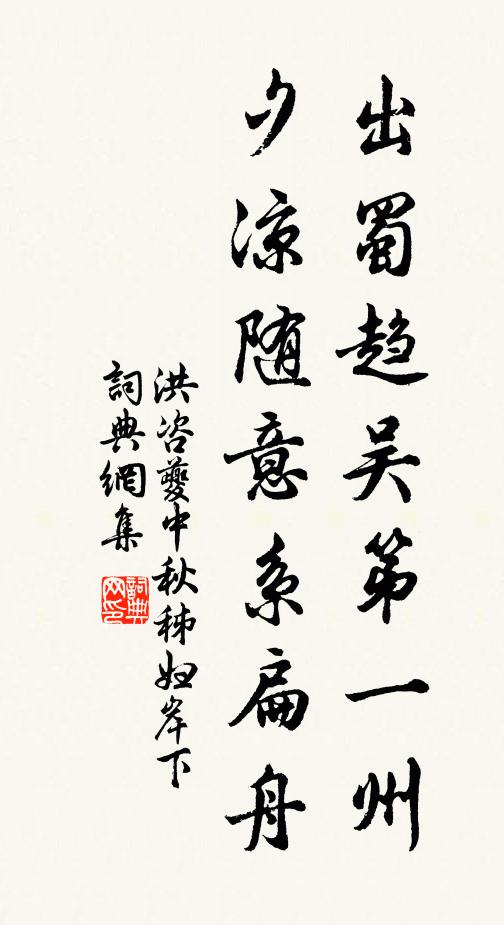 出蜀趋吴第一州
夕凉随意系扁舟
洪咨夔中秋秭归岸下
詞典網集
詞典
网印